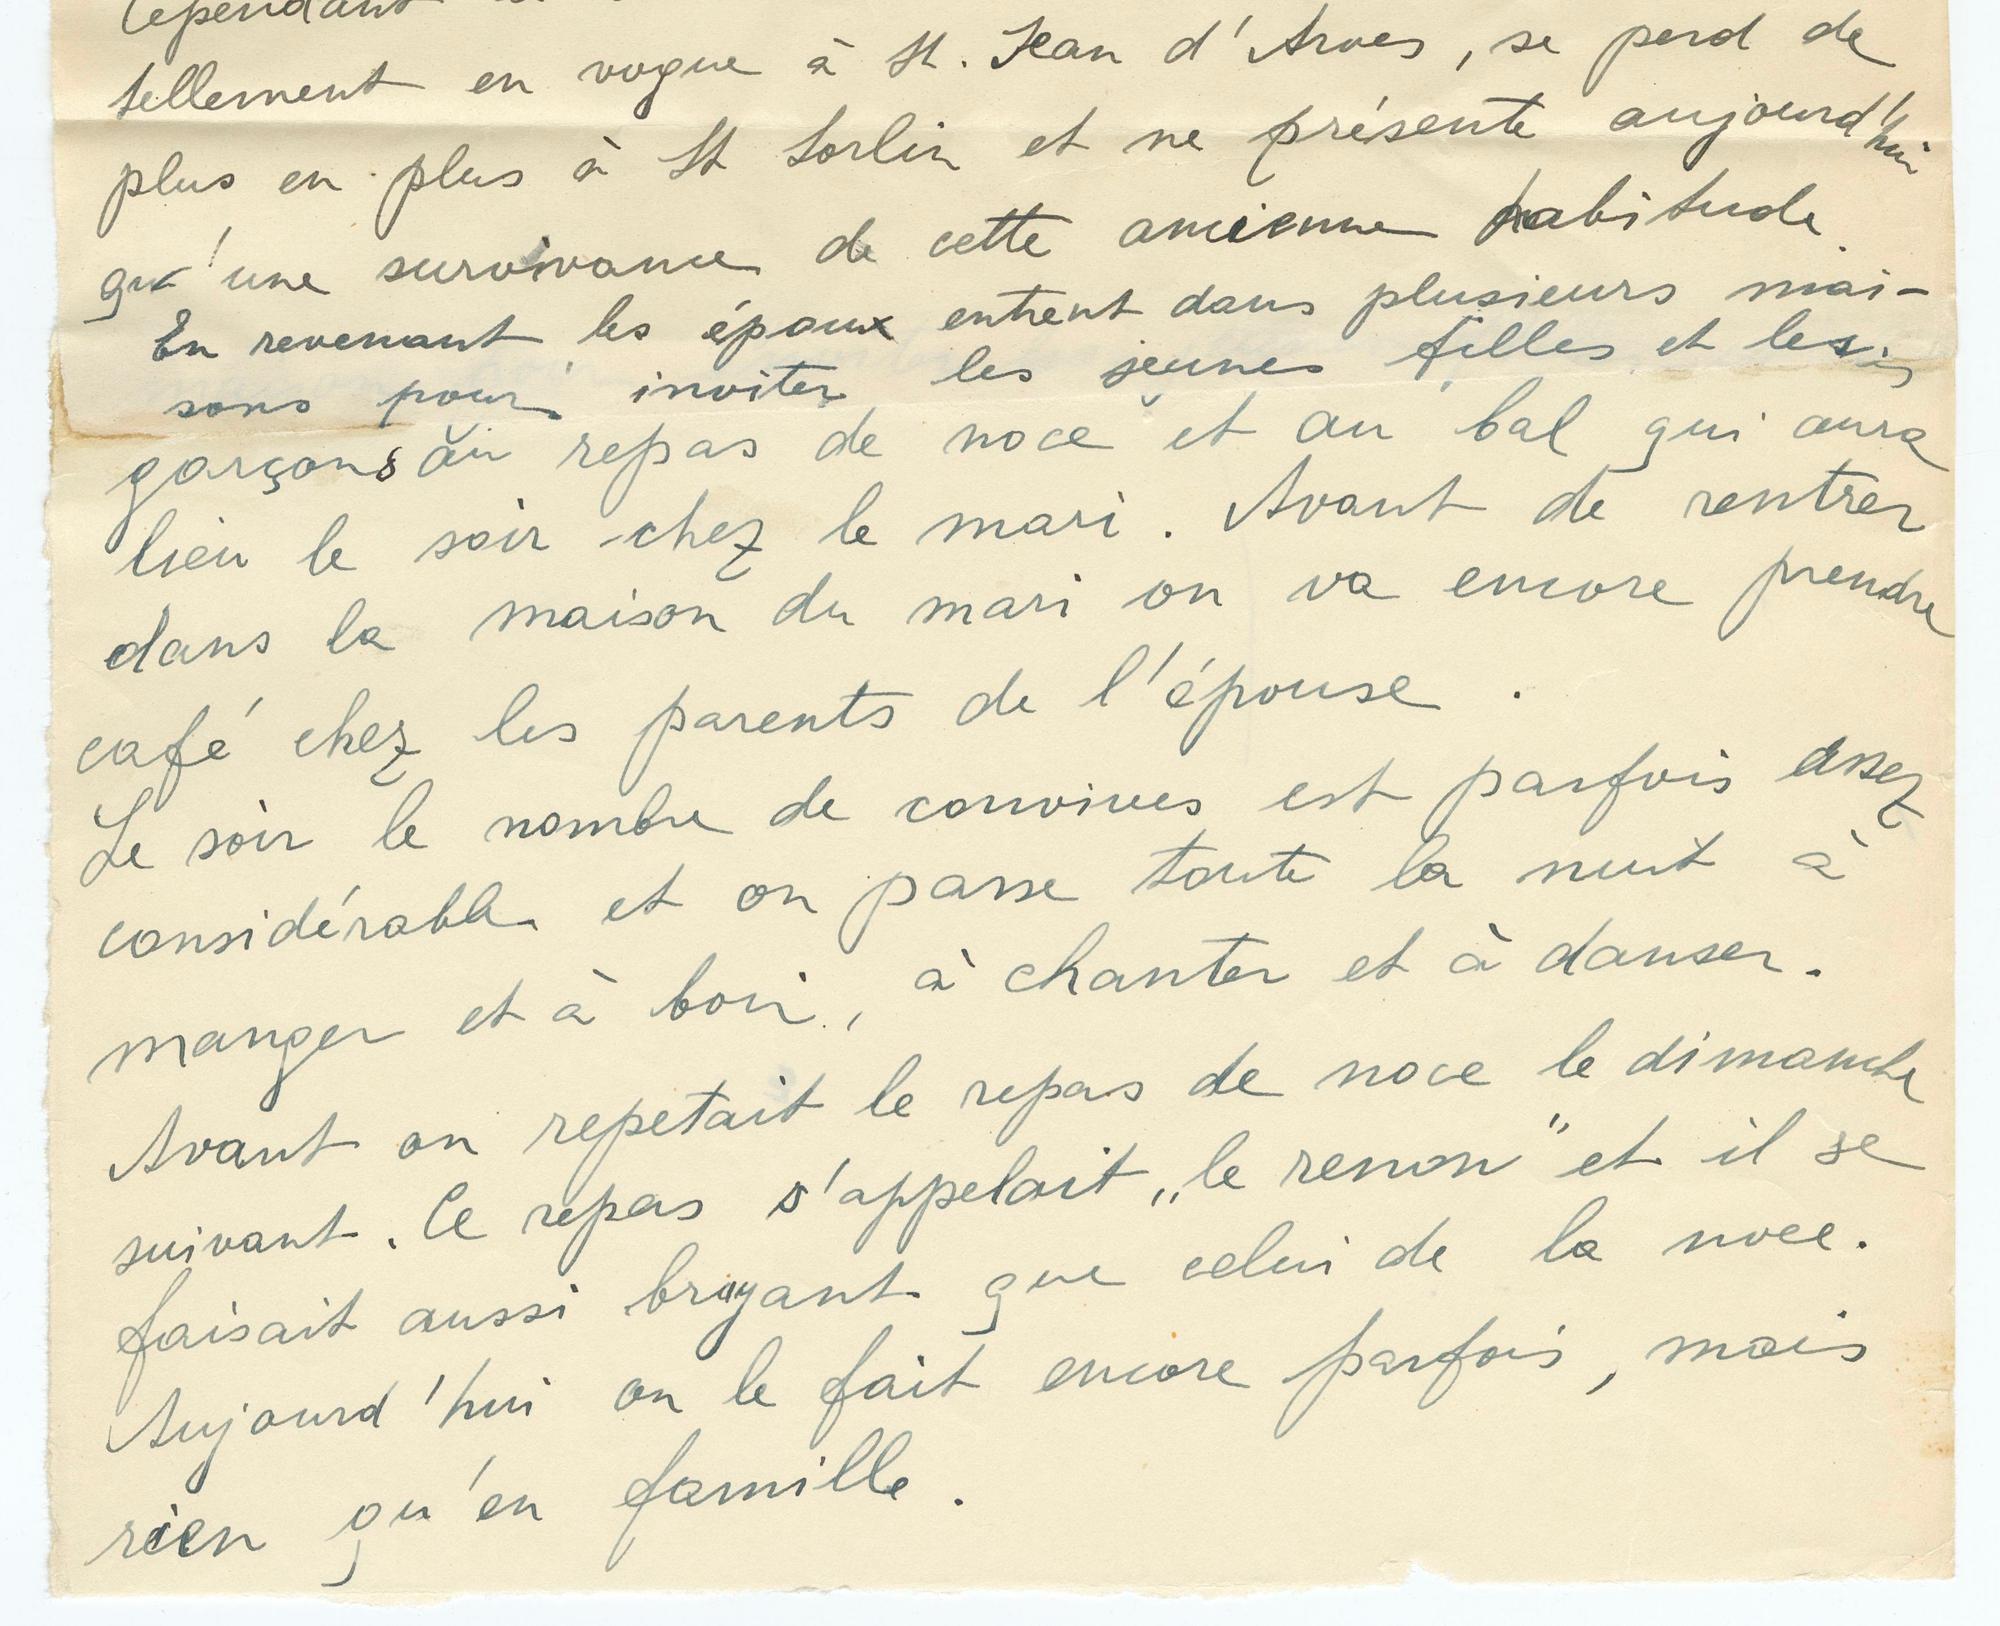 Cependant
tellement en vogue à St. Jean d'Arves, se perd de
plus en plus à St Sorlin et ne présente aujourd'hui
qu'une survivance de cette ancienne habitude.
En revenant les époux entrent dans plusieurs mai-
sons pour inviter les jeunes filles et les
garçons au repas de noce et au bal qui aura
lieu le soir chez le mari. Avant de rentrer
dans la maison du mari on va encore prendre
café chez les parents de l'épouse.
Le soir le nombre de convives est parfois assez
considérable et on passe toute la nuit à
manger et à boir, à chanter et à danser.
Avant on repetait le repas de noce le dimanche
suivant. Ce repas s'appelait „le renon" et il se
faisait aussi bruyant que celui de la noce.
Aujourd'hui on le fait encore parfois, mais
rien qu'en famille.